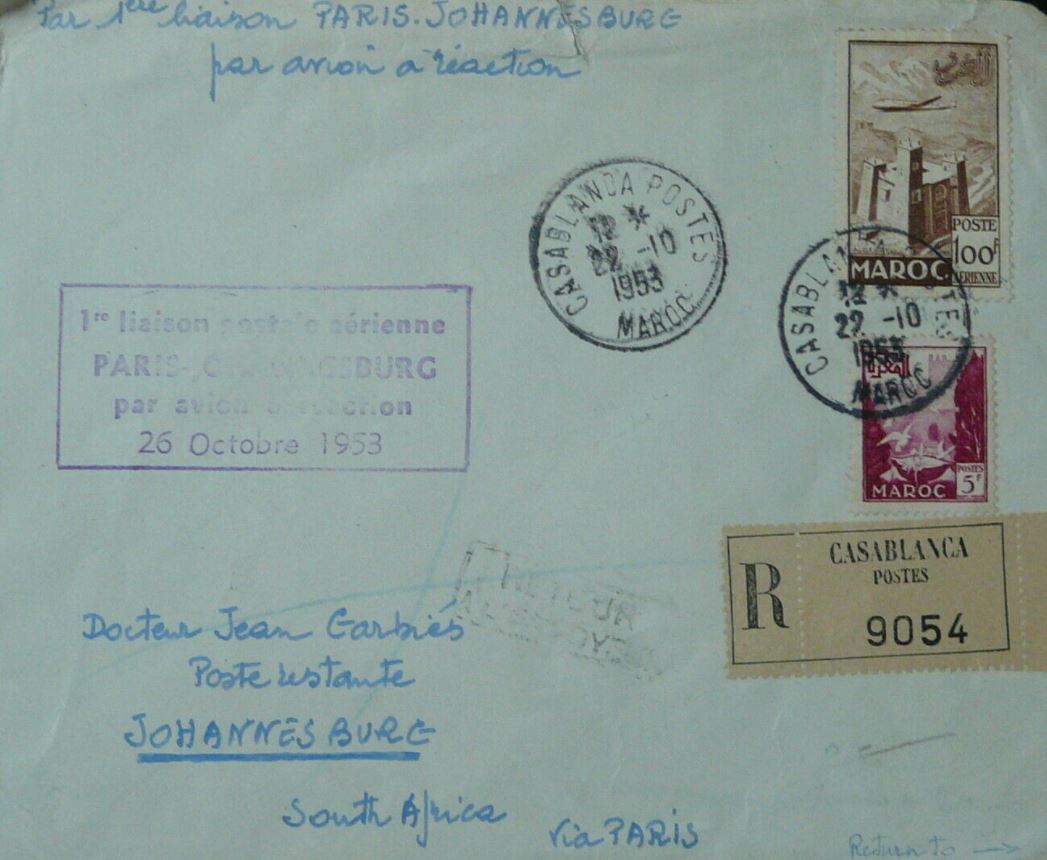 Par 1ère liaison PARIS-JOHANNESBURG
par avion à réaction
المغرب
POSTE
100F
AÉRIENNE
MAROC
CASABLANCA POSTES
12 *
22 -10
1953
MAROC
CASABLANCA POSTES
12 *
22 -10
1953
MAROC
POSTES
5F
MAROC
1re liaison postale aérienne
PARIS-JOHANNESBURG
par avion à réaction
26 Octobre 1953
RETOUR
A L'ENVOYEUR
R
CASABLANCA
POSTES
9054
Docteur Jean Garbiés
Poste restante
JOHANNESBURG
South Africa
Via PARIS
Return to →